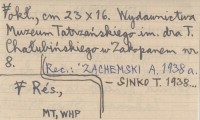 okł., cm 23 x 16. Wydawnictwa
Muzeum Tatrzańskiego im. dra T.
Chałubińskiego w Zakopanem nr
8.
Rec.: ZACHEMSKI A. 1938 a.
— SINKO T. 1938...
Rés.,
MT, WHP